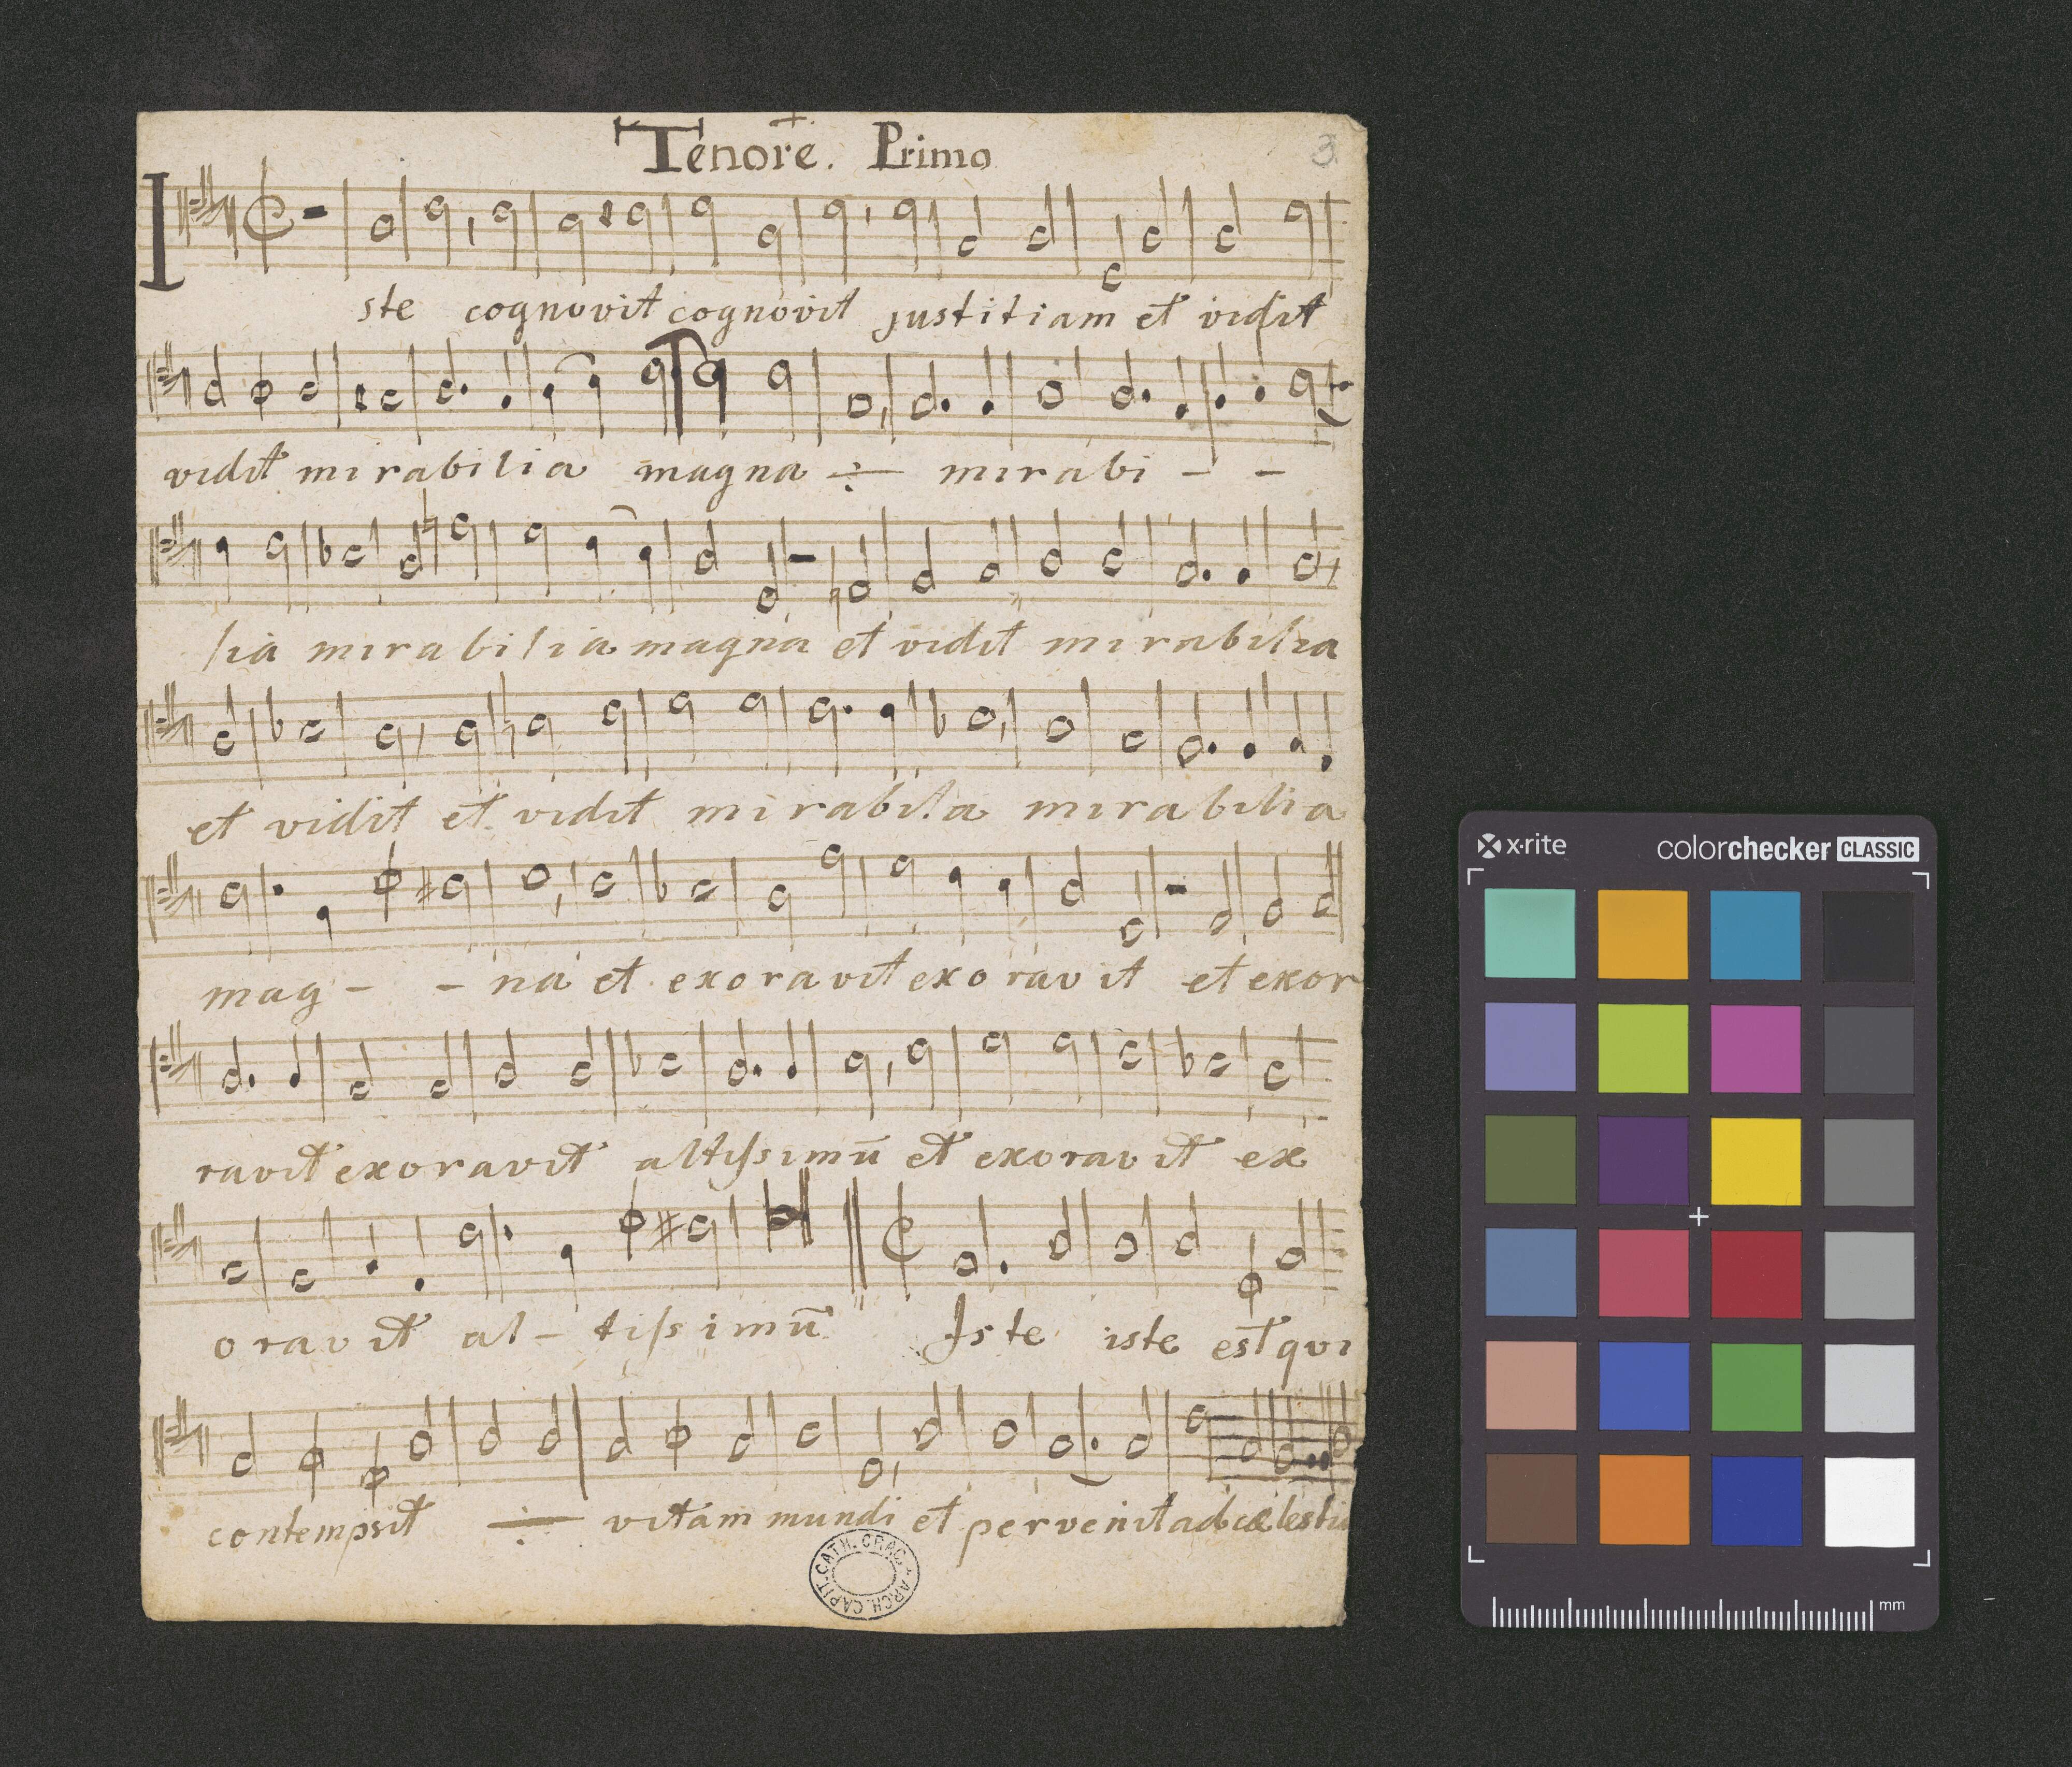 Tenore. Primo
3
Iste cognovit cognovit justitiam et vidit
vidit mirabilia magna ÷ mirabi - -
lia mirabilia magna et vidit mirabilia
et vidit et vidit mirabila mirabilia
mag - - na et exoravit exoravit et exor
ravit exoravit altissimū et exoravit ex
oravit al - tissimū Iste iste est qui
contempsit ÷ vitam mundi et pervenit ad cælestia
ARCH. CAPIT. CATH. CRAC.
x·rite colorchecker CLASSIC
mm